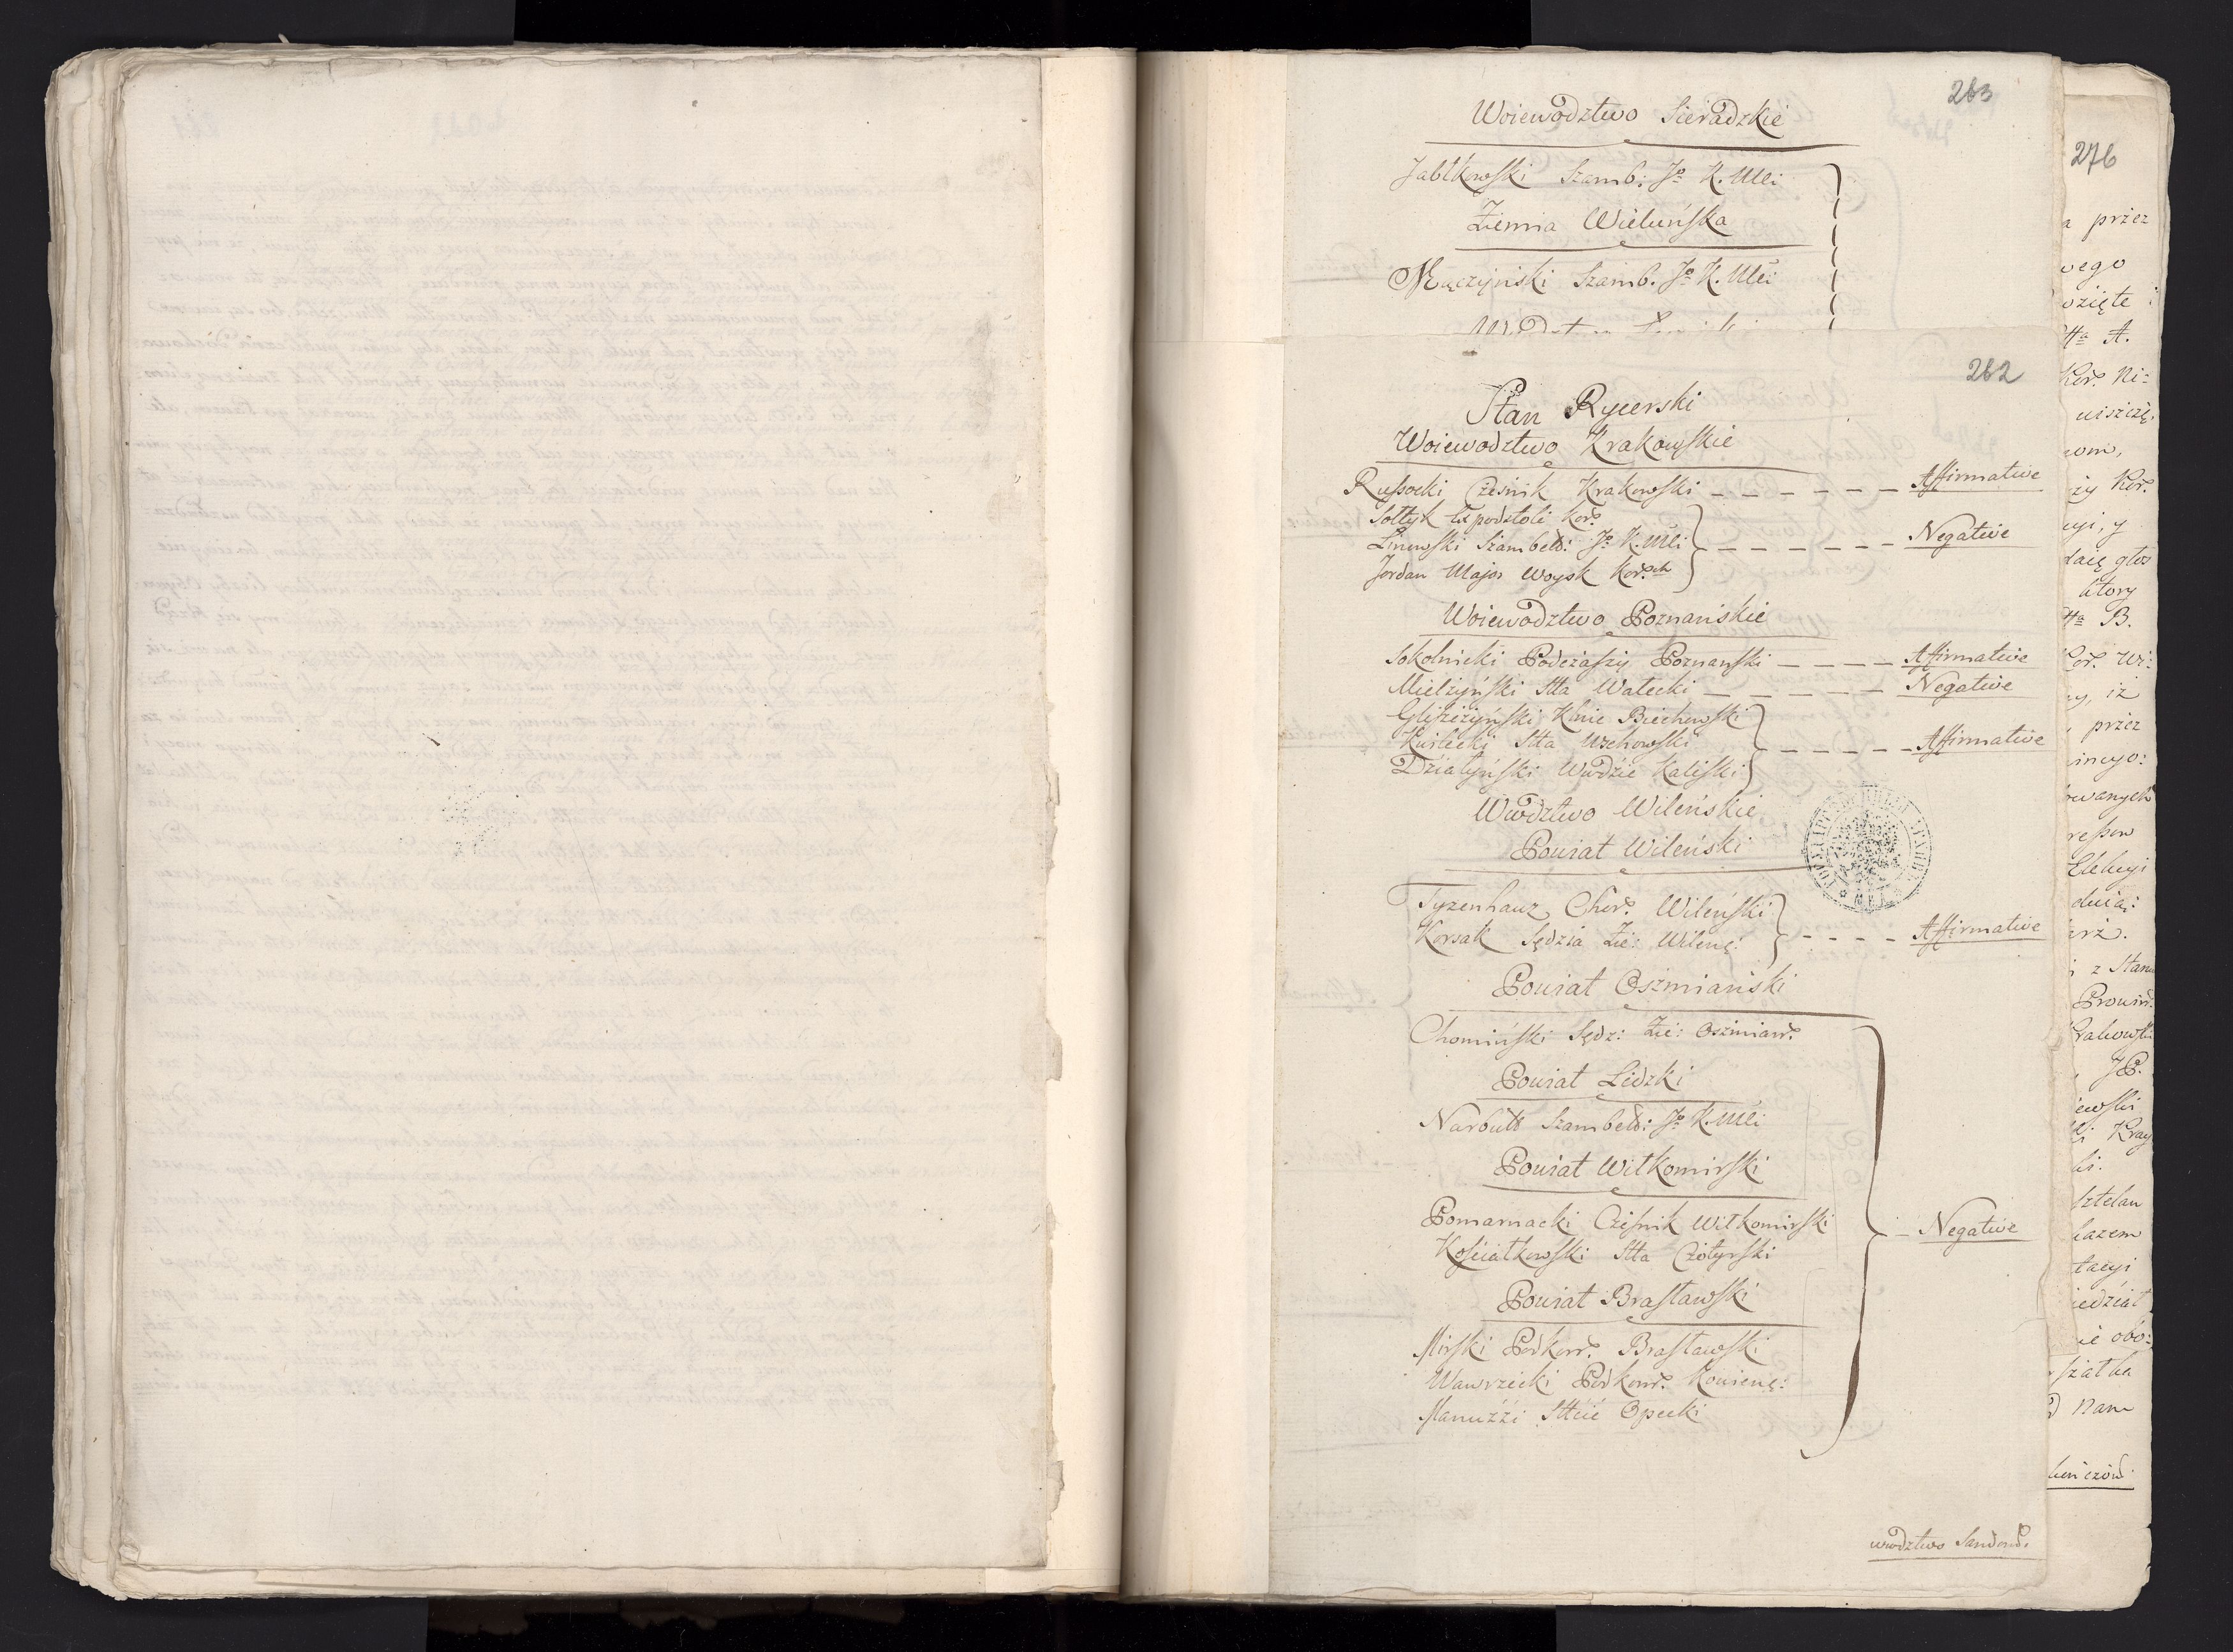 263
Woiewodztwo Sieradzkie
Jabłkowski Szamb: Jº K. Mći
Ziemia Wieluńska
Mączyński Szamb. Jº K. Mći
262
Stan Rycerski
Woiewodztwo Krakowskie
Russocki Cześnik Krakowski – – – – – – Affirmative
Sołtyk Ex podstoli Kor.
Linowski Szambel: Jº K. Mći – – – – – – Negative
Jordan Major Woysk Kor.ch
Woiewodztwo Poznańskie
Sokolnicki Podczaszy Poznański – – – – Affirmative
Mielżyński Stta Wałecki – – – – – – Negative
Gliszczyński Klnic Biechowski
Kwilecki Stta Wschowski – – – – – – Affirmative
Działyński Wwdzic Kaliski
Wwdztwo Wileńskie
Powiat Wileński
Tyzenhauz Chor. Wileński
Korsak Sędzia Zie: Wileńs: – – – – Affirmative
Powiat Oszmiański
Chomiński Sędz: Zie: Oszmian.
Powiat Lidzki
Narbutt Szambel: Jº K. Mći
Powiat Wiłkomirski
Pomarnacki Cześnik Wiłkomirski – Negative
Kościałkowski Stta Czotyrski
Powiat Brasławski
Mirski Podkom. Brasławski
Wawrzecki Podkom. Kowieńs:
Manuzzi Sttcic Opecki
wwdztwo Sandom.
276
a przez
wego
wzięte i
Stta A.
Kor. Ni=
uiszczę.
wom,
ży Kor.
cyi, y
daię głos
ktory
Stta B.
Kor. Wi:
ny, iż
, przez
incyo:
owanych
ressow
Elekcyi
dnia:
arz.
i z Stanu
Prowin.
Krakowski
, JP.
iewski
Kray
ki.
sztelan
kazem
tacyi
iedział
ie obo:
szałka
Nam